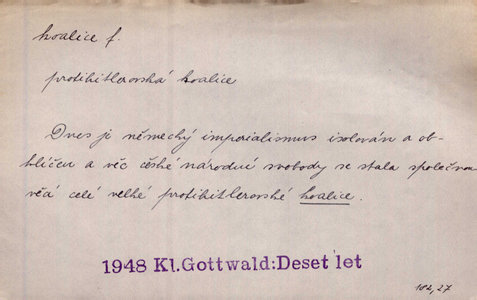 koalice f.
protihitlerovská koalice
Dnes je německý imperialismus isolován a ob-
klíčen a věc české národní svobody se stala společnou
věcí celé velké protihitlerovské koalice.
1948 Kl.Gottwald:Deset let
102,27